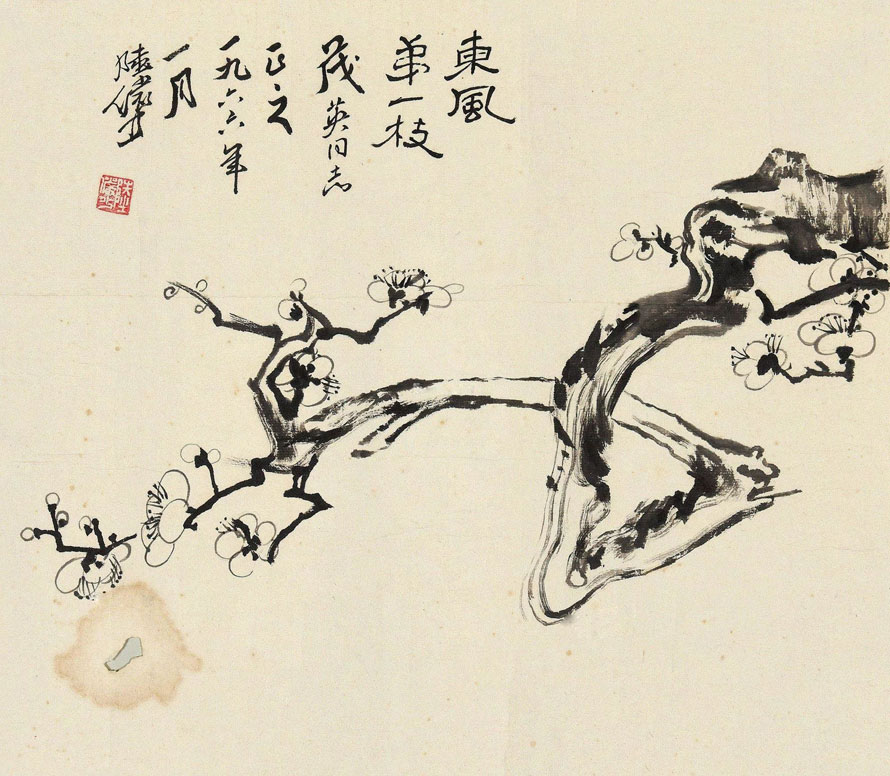 東風
第一枝
茂英同志
正之
一九六六年
一月
陸